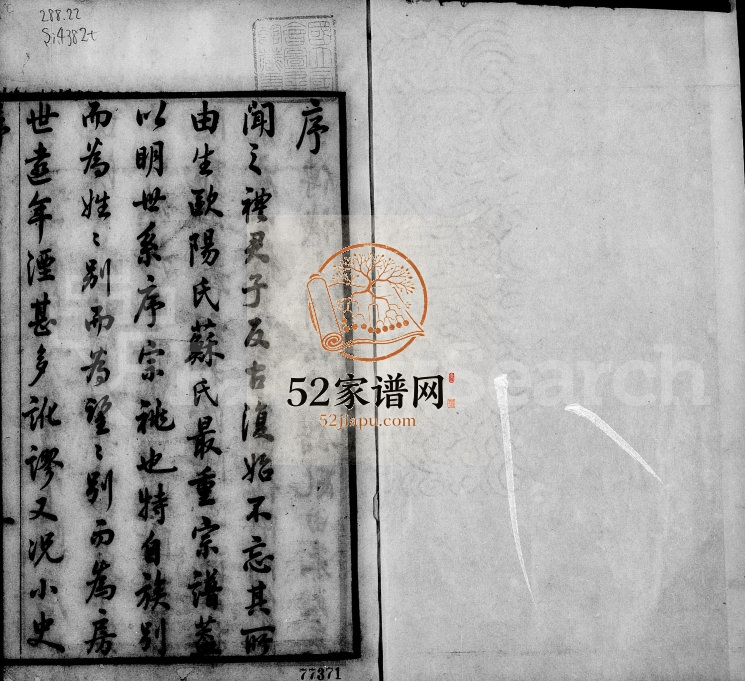 288.22
Si4382t
序
聞之禮君子反古復始不忘其所
由生歐陽氏蘇氏最重宗譜蓋
以明世系序宗祧也特自族别
而為姓〻别而為望〻别而為房
世遠年湮甚多訛謬又況小史
52家谱网
52jiapu.com
Search
77371